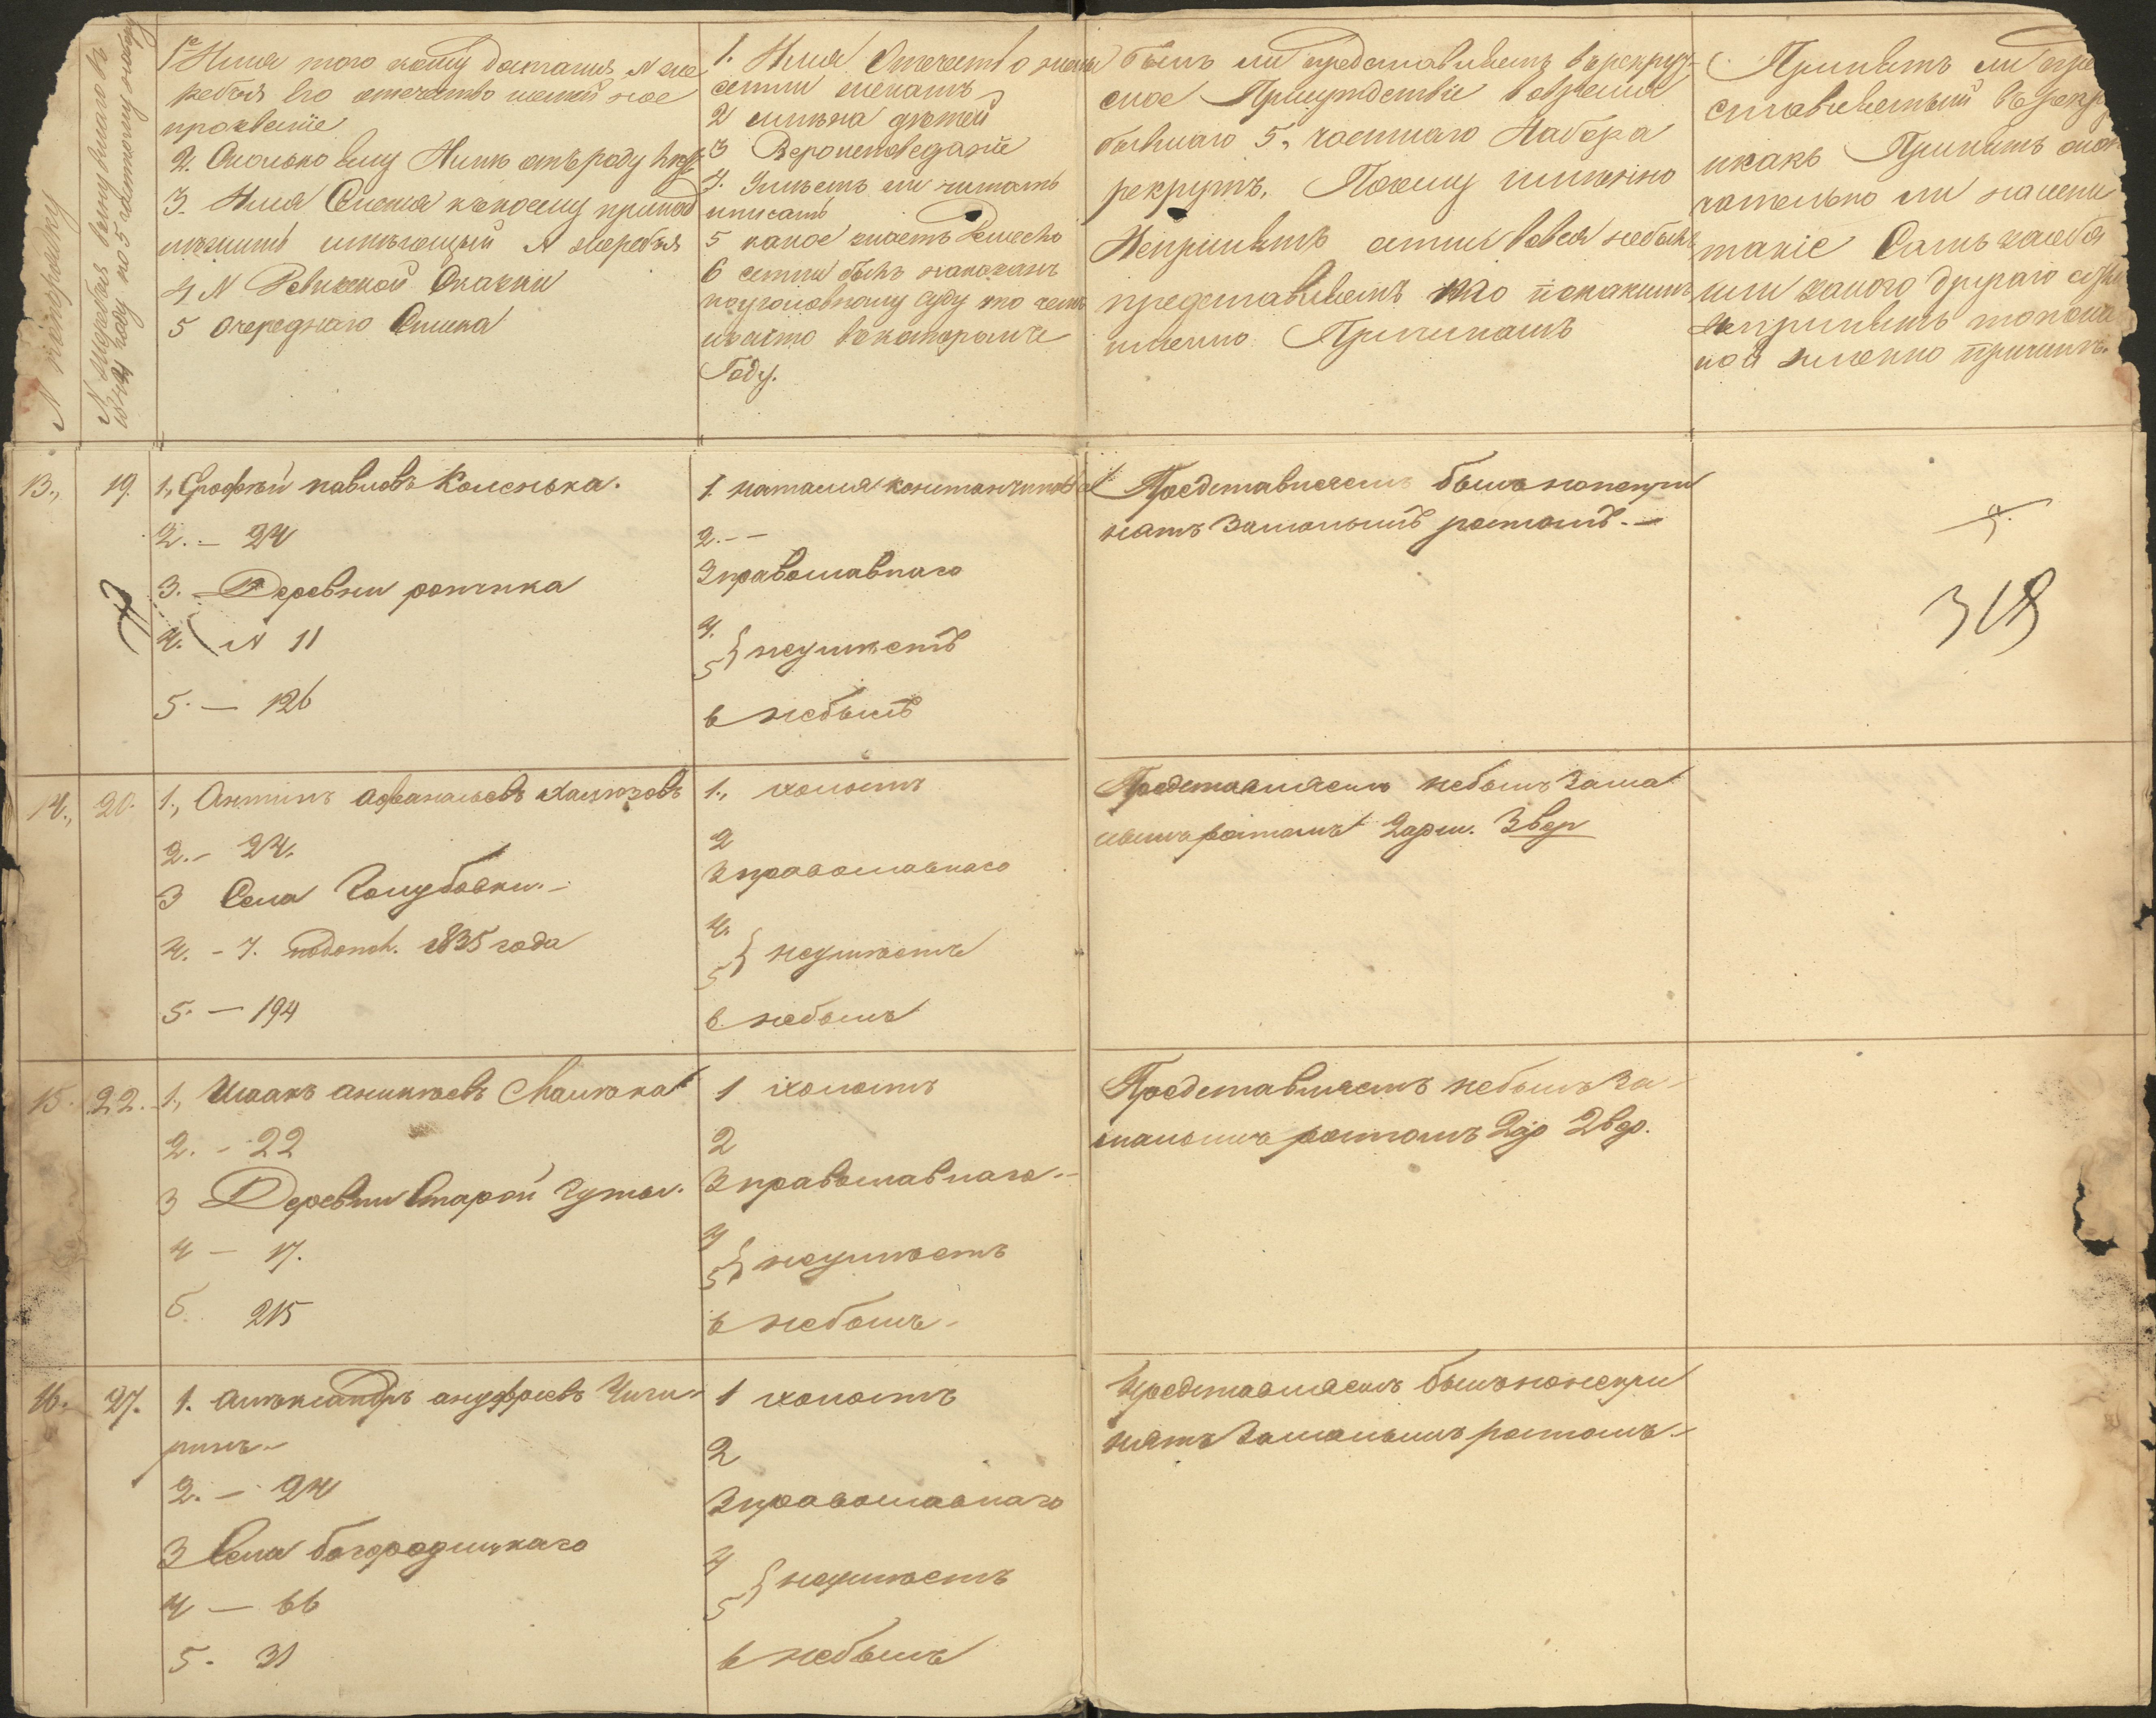 N попорядку
N жеребья кому выпаго въ
184 году по 5 частному набору
1е Имя того кому достался N же
ребья его отечество и
прозвание
2. Сколько ему лѣтъ отъ роду
3. Имя Селенія къ коему принад
лѣжитъ имѣющій N жеребья
4 N Ревижской Сказки
5 очереднаго Списка
1. Имя Отечество жены
естли женатъ
2 имѣна дѣтей
3 Вероисповедание
4. Умѣетъ ли читать
иписать
5 какое знаетъ Ремесло
6 естли былъ наказанъ
поуголовному суду то
вкоторомъ
Году.
былъ ли представляемъ врекрут
ское Присудствіе вовремя
бывшаго 5, частнаго Набора
рекрутъ. Почему имѣнно
Непринятъ естли вовся небылъ
представляемъ то покакимъ
именно Причинамъ
Принятъ ли пред
ставляемый врекру
икакъ Принятъ окон
чательно ли назаче
такіе Самъ засебя
или закого другаго
непринятъ то
кой именно причинѣ.
13., 19. 1., Ерофѣй павловъ Коленька.
2. – 24
3. – Деревни ропчика
4. N 11
5. – 126
1. наталия константинова
2. – –
3 православнаго
4.
5 } неумѣетъ
6 небылъ
Представляемъ былъ нонепри
нятъ Замалымъ ростомъ. –
318
14., 20. 1., Антипъ Афанасьевъ
2. – 24.
3 Села Голубовки. –
4. – 7. 1835 года
5. – 194
1., холостъ
2
3 православнаго
4.
5 } неумѣетъ
6 небылъ
Представляемъ небылъ Зама
лымъ ростомъ 2 арш. 3 вер
15. 22. 1., Исаакъ аникѣевъ
2. – 22
3 Деревни Старой Гуты.
4 – 17.
5. 215
1 холостъ
2
3 православнаго. –
4
5 } неумѣетъ
6 небылъ –
Представляемъ небылъ За
малымъ ростомъ 2 ар 2 вер.
16. 27. 1. Алѣксандръ ануфриевъ Чиги
ринъ –
2. – 24
3 Села богородицкаго
4 – 66
5. 31
1 холостъ
2
3 православнаго
4
5 } неумѣетъ
6 небылъ
Представляемъ былъ нонепри
нятъ Замалымъ ростомъ. –